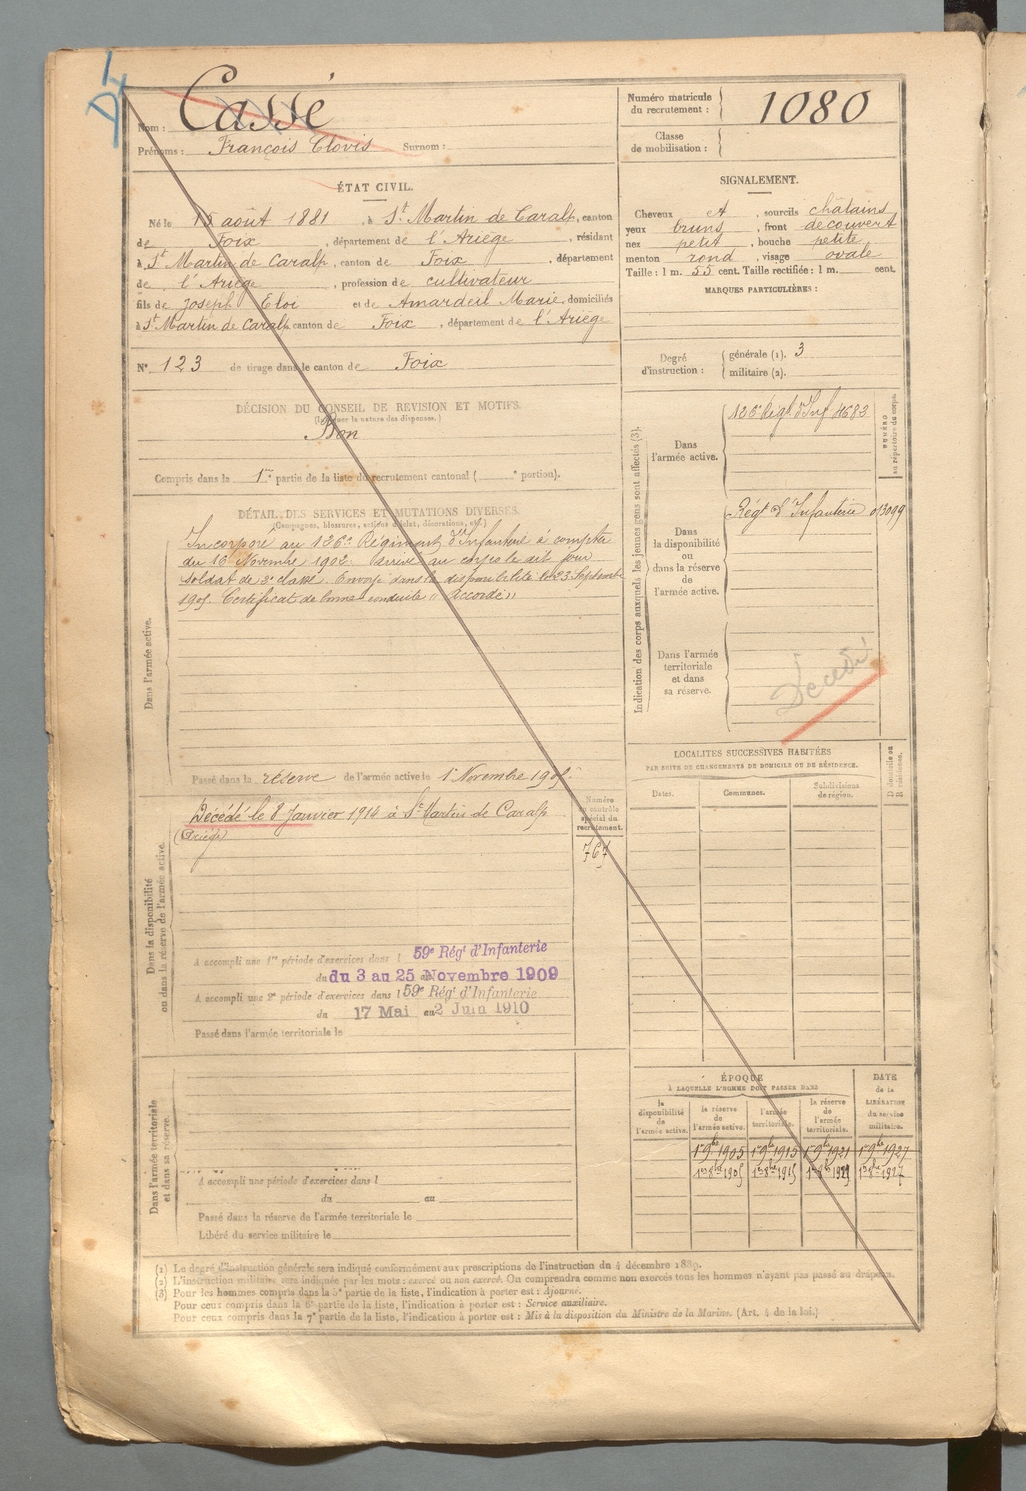 Nom : Cassé
Prénoms : François Clovis Surnom :
Numéro matricule du recrutement : 1080
Classe de mobilisation :
ÉTAT CIVIL.
Né le 15 août 1881, à St Martin de Caralp, canton
de Foix, département de l'Ariège, résidant
à St Martin de Caralp, canton de Foix, département
de l'Ariège, profession de cultivateur
fils de Joseph Eloi et de Amardeil Marie, domiciliés
à St Martin de Caralp canton de Foix, département de l'Ariège
N° 123 de tirage dans le canton de Foix
SIGNALEMENT.
Cheveux et, sourcils châtains
yeux bruns, front découvert
nez petit, bouche petite
menton rond, visage ovale
Taille : 1 m. 55 cent. Taille rectifiée : 1 m. cent.
MARQUES PARTICULIÈRES :
Degré d'instruction : générale (1). 3
militaire (2).
DÉCISION DU CONSEIL DE REVISION ET MOTIFS.
(Indiquer la nature des dispenses.)
Bon
Compris dans la 1re partie de la liste du recrutement cantonal ( e portion).
DÉTAIL DES SERVICES ET MUTATIONS DIVERSES.
(Campagnes, blessures, actions d'éclat, décorations, etc.)
Dans l'armée active.
Incorporé au 126e Régiment d'Infanterie à compter
du 16 Novembre 1902. arrivé au corps le dit jour
soldat de 2e classe. Envoyé dans la disponibilité le 23 Septembre
1905. Certificat de bonne conduite "Accordé"
Passé dans la réserve de l'armée active le 1er Novembre 1905
Indication des corps auxquels les jeunes gens sont affectés (3).
NUMÉRO au répertoire du corps.
Dans l'armée active.
126e Régt d'Inf 4683
Dans la disponibilité ou dans la réserve de l'armée active.
Régt d'Infanterie 013099
Dans l'armée territoriale et dans sa réserve.
Décédé
Dans la disponibilité ou dans la réserve de l'armée active.
Décédé le 8 Janvier 1914 à St Martin de Caralp
(Ariège)
Numéro au contrôle spécial du recrutement.
767
A accompli une 1re période d'exercices dans l 59e Régt d'Infanterie
du du 3 au 25 Novembre 1909
A accompli une 2e période d'exercices dans l 59e Régt d'Infanterie
du 17 Mai au 2 Juin 1910
Passé dans l'armée territoriale le
LOCALITÉS SUCCESSIVES HABITÉES
PAR SUITE DE CHANGEMENTS DE DOMICILE OU DE RÉSIDENCE.
Dates. Communes. Subdivisions de région. D domicile ou R résidence.
Dans l'armée territoriale et dans sa réserve.
A accompli une période d'exercices dans l
du au
Passé dans la réserve de l'armée territoriale le
Libéré du service militaire le
ÉPOQUE
À LAQUELLE L'HOMME DOIT PASSER DANS
DATE de la LIBÉRATION du service militaire.
la disponibilité de l'armée active. la réserve de l'armée active. l'armée territoriale. la réserve de l'armée territoriale.
1er 9bre 1905 1er 9bre 1915 1er 9bre 1921 1er 9bre 1927
1er 8bre 1905 1er 8bre 1915 1er 8bre 1921 1er 8bre 1927
(1) Le degré d'instruction générale sera indiqué conformément aux prescriptions de l'instruction du 4 décembre 1889.
(2) L'instruction militaire sera indiquée par les mots : exercé ou non exercé. On comprendra comme non exercés tous les hommes n'ayant pas passé au drapeau.
(3) Pour les hommes compris dans la 5e partie de la liste, l'indication à porter est : Ajourné.
Pour ceux compris dans la 6e partie de la liste, l'indication à porter est : Service auxiliaire.
Pour ceux compris dans la 7e partie de la liste, l'indication à porter est : Mis à la disposition du Ministre de la Marine. (Art. 4 de la loi.)